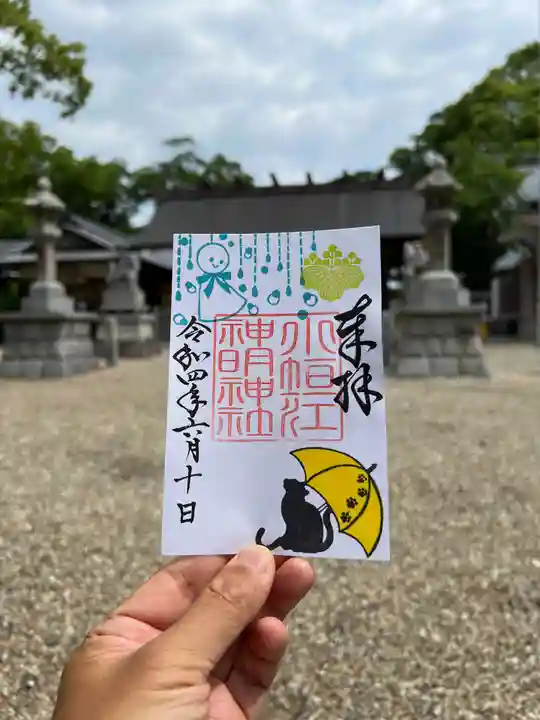 来拝
小垣江
神明神社
令和四年六月十日